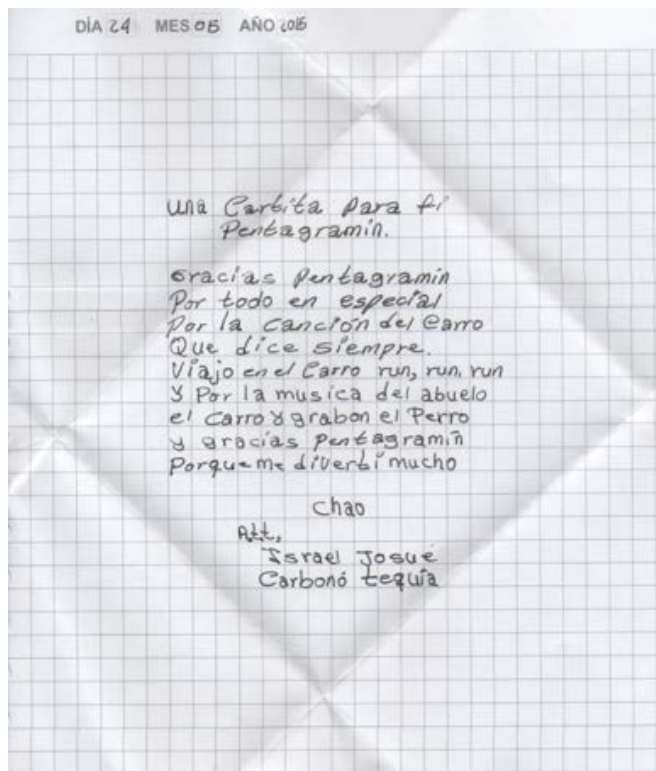 DÍA 24 MES 05 AÑO 2015
una Cartita Para ti
Pentagramin.
Gracias Pentagramin
Por todo en especial
Por la canción del Carro
Que dice siempre.
Viajo en el Carro run, run, run
y Por la musica del abuelo
el Carro y grabon el Perro
y gracias Pentagramin
Porque me divertí mucho
chao
Att,
Israel Josué
Carbonó tequia